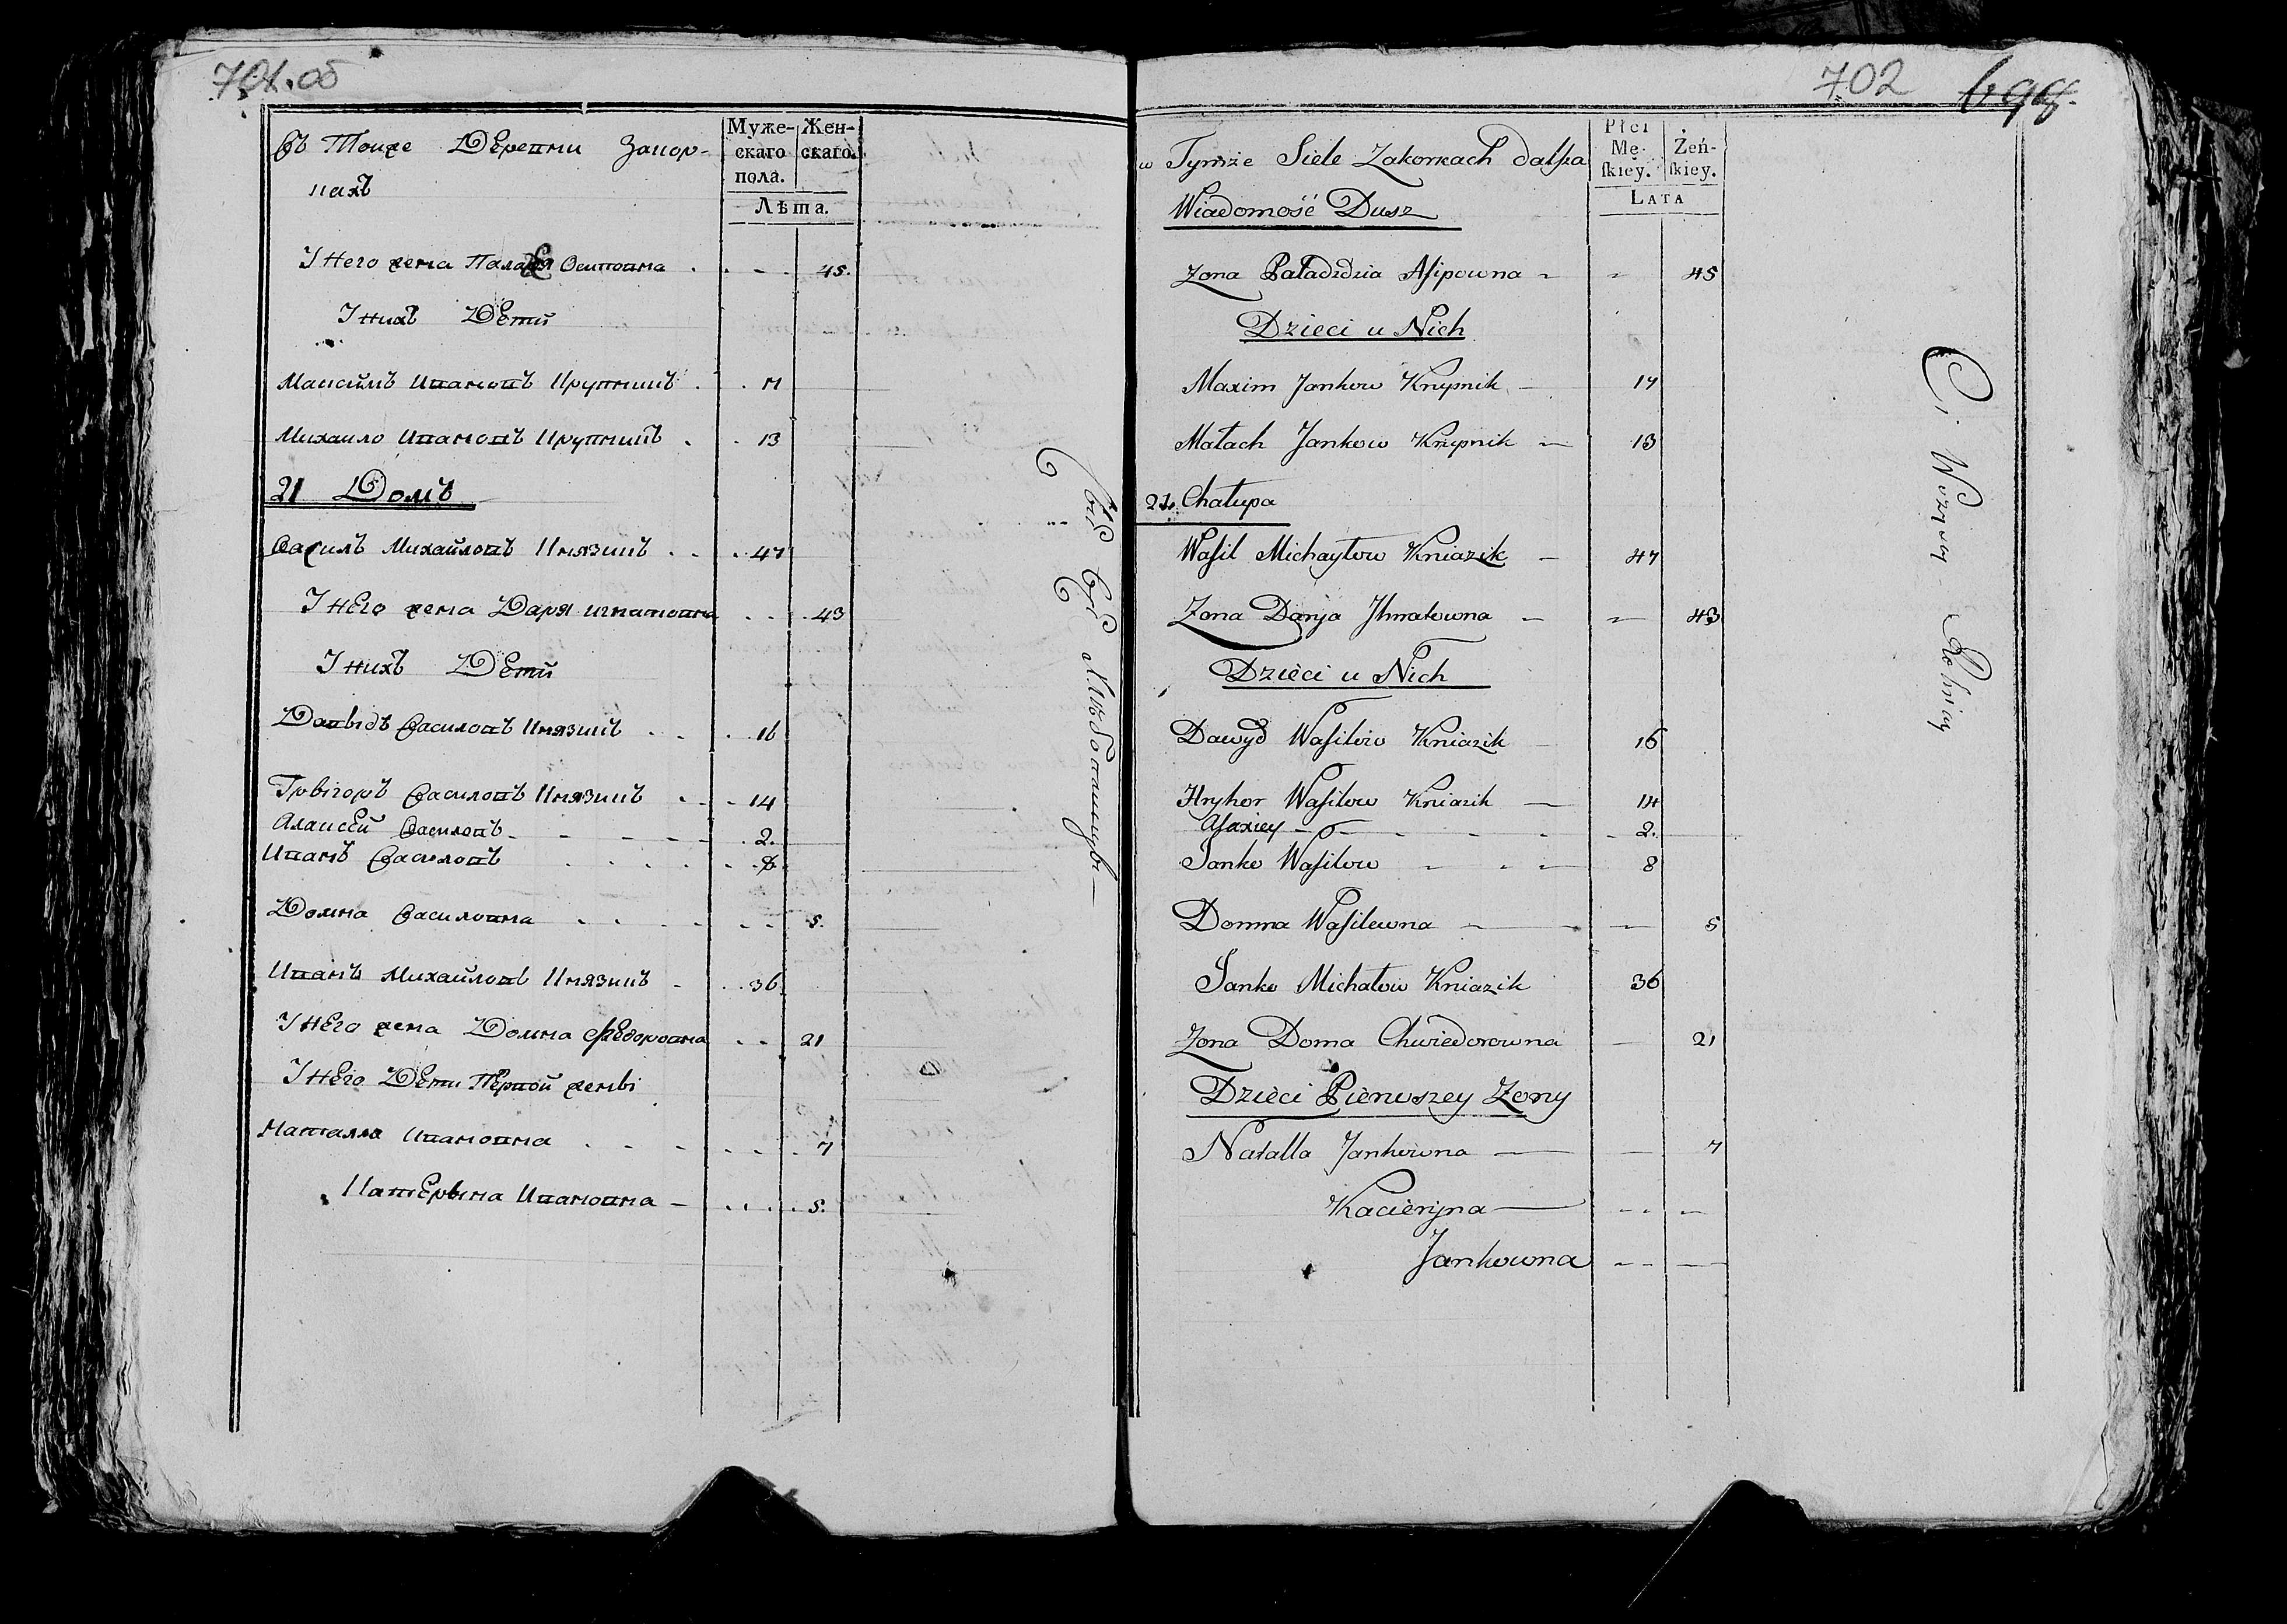 701.об
Въ Тойже Деревни Закор-
кахъ
Муже-
скаго
пола.
Жен-
скаго.
Лѣта.
У Него жена Паладя Осиповна 45.
У нихъ Дети
Максимъ Ивановъ Крупникъ 17
Михаило Ивановъ Крупникъ 13
21 Домъ
Василъ Михайловъ Князикъ 47
У Него жена Даря игнатовна 43
У нихъ Дети
Давыдъ Василовъ Князикъ 16
Грыгоръ Василовъ Князикъ 14
Алаксей Василовъ 2.
Иванъ Василовъ 8.
Домна Василовна 5.
Иванъ Михайловъ Князикъ 36
У Него жена Домна Федоровна 21
У Него Дети Первой жены
Наталла Ивановна 7
Катерына Ивановна 5.
702
w Tymże Siele Zakorkach dalsza
Wiadomość Dusz
Płci
Mę-
ſkiey.
Żeń-
ſkiey.
LATA
Zona Paladzdzia Asipowna 45
Dzieci u Nich
Maxim Jankow Krupnik 17
Małach Jankow Krupnik 13
21. Chałupa
Wasil Michayłow Kniazik 47
Zona Darja Ihnatowna 43
Dzieci u Nich
Dawyd Wasilow Kniazik 16
Hryhor Wasilow Kniazik 14
Alaxiey 2.
Janko Wasilow 8
Domna Wasilewna 5
Janko Michałow Kniazik 36
Zona Doma Chwiedorowna 21
Dzieci Pierwszey Zony
Natalla Jankowna 7
Kacieryna
Jankowna